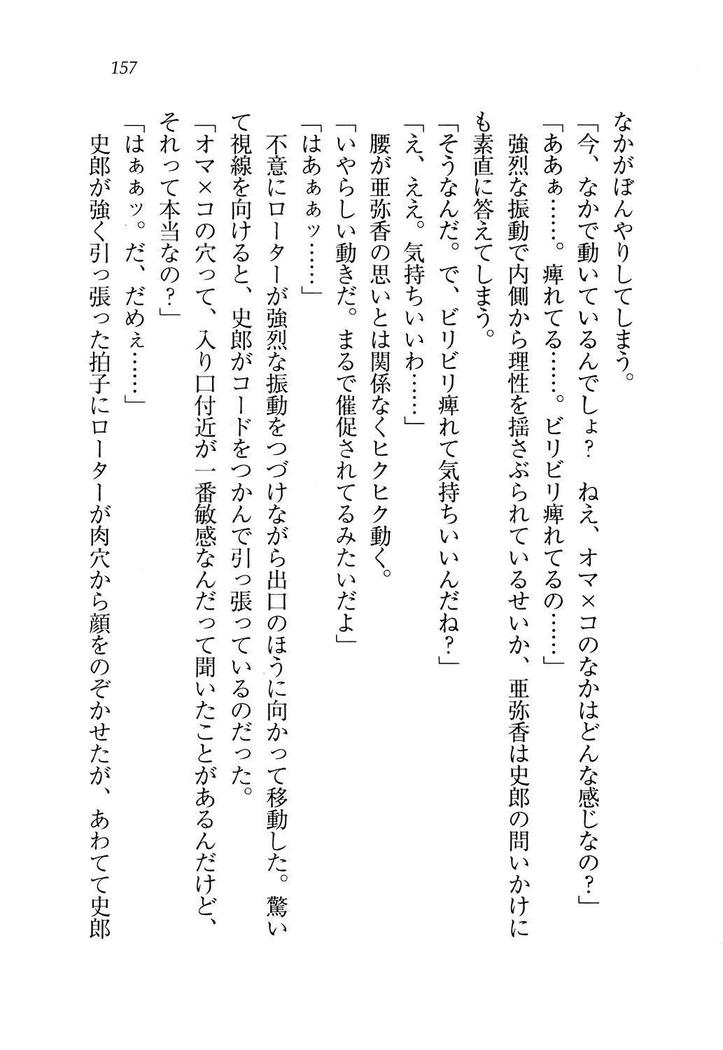 157
なかがぼんやりしてしまう。
「今、なかで動いているんでしょ？　ねえ、オマ×コのなかはどんな感じなの？」
「ああぁ……。痺れてる……。ビリビリ痺れてるの……」
　強烈な振動で内側から理性を揺さぶられているせいか、亜弥香は史郎の問いかけに
も素直に答えてしまう。
「そうなんだ。で、ビリビリ痺れて気持ちいいんだね？」
「え、ええ。気持ちいいわ……」
　腰が亜弥香の思いとは関係なくヒクヒク動く。
「いやらしい動きだ。まるで催促されてるみたいだよ」
「はあぁぁッ……」
　不意にローターが強烈な振動をつづけながら出口のほうに向かって移動した。驚い
て視線を向けると、史郎がコードをつかんで引っ張っているのだった。
「オマ×コの穴って、入り口付近が一番敏感なんだって聞いたことがあるんだけど、
それって本当なの？」
「はぁぁッ。だ、だめぇ……」
　史郎が強く引っ張った拍子にローターが肉穴から顔をのぞかせたが、あわてて史郎